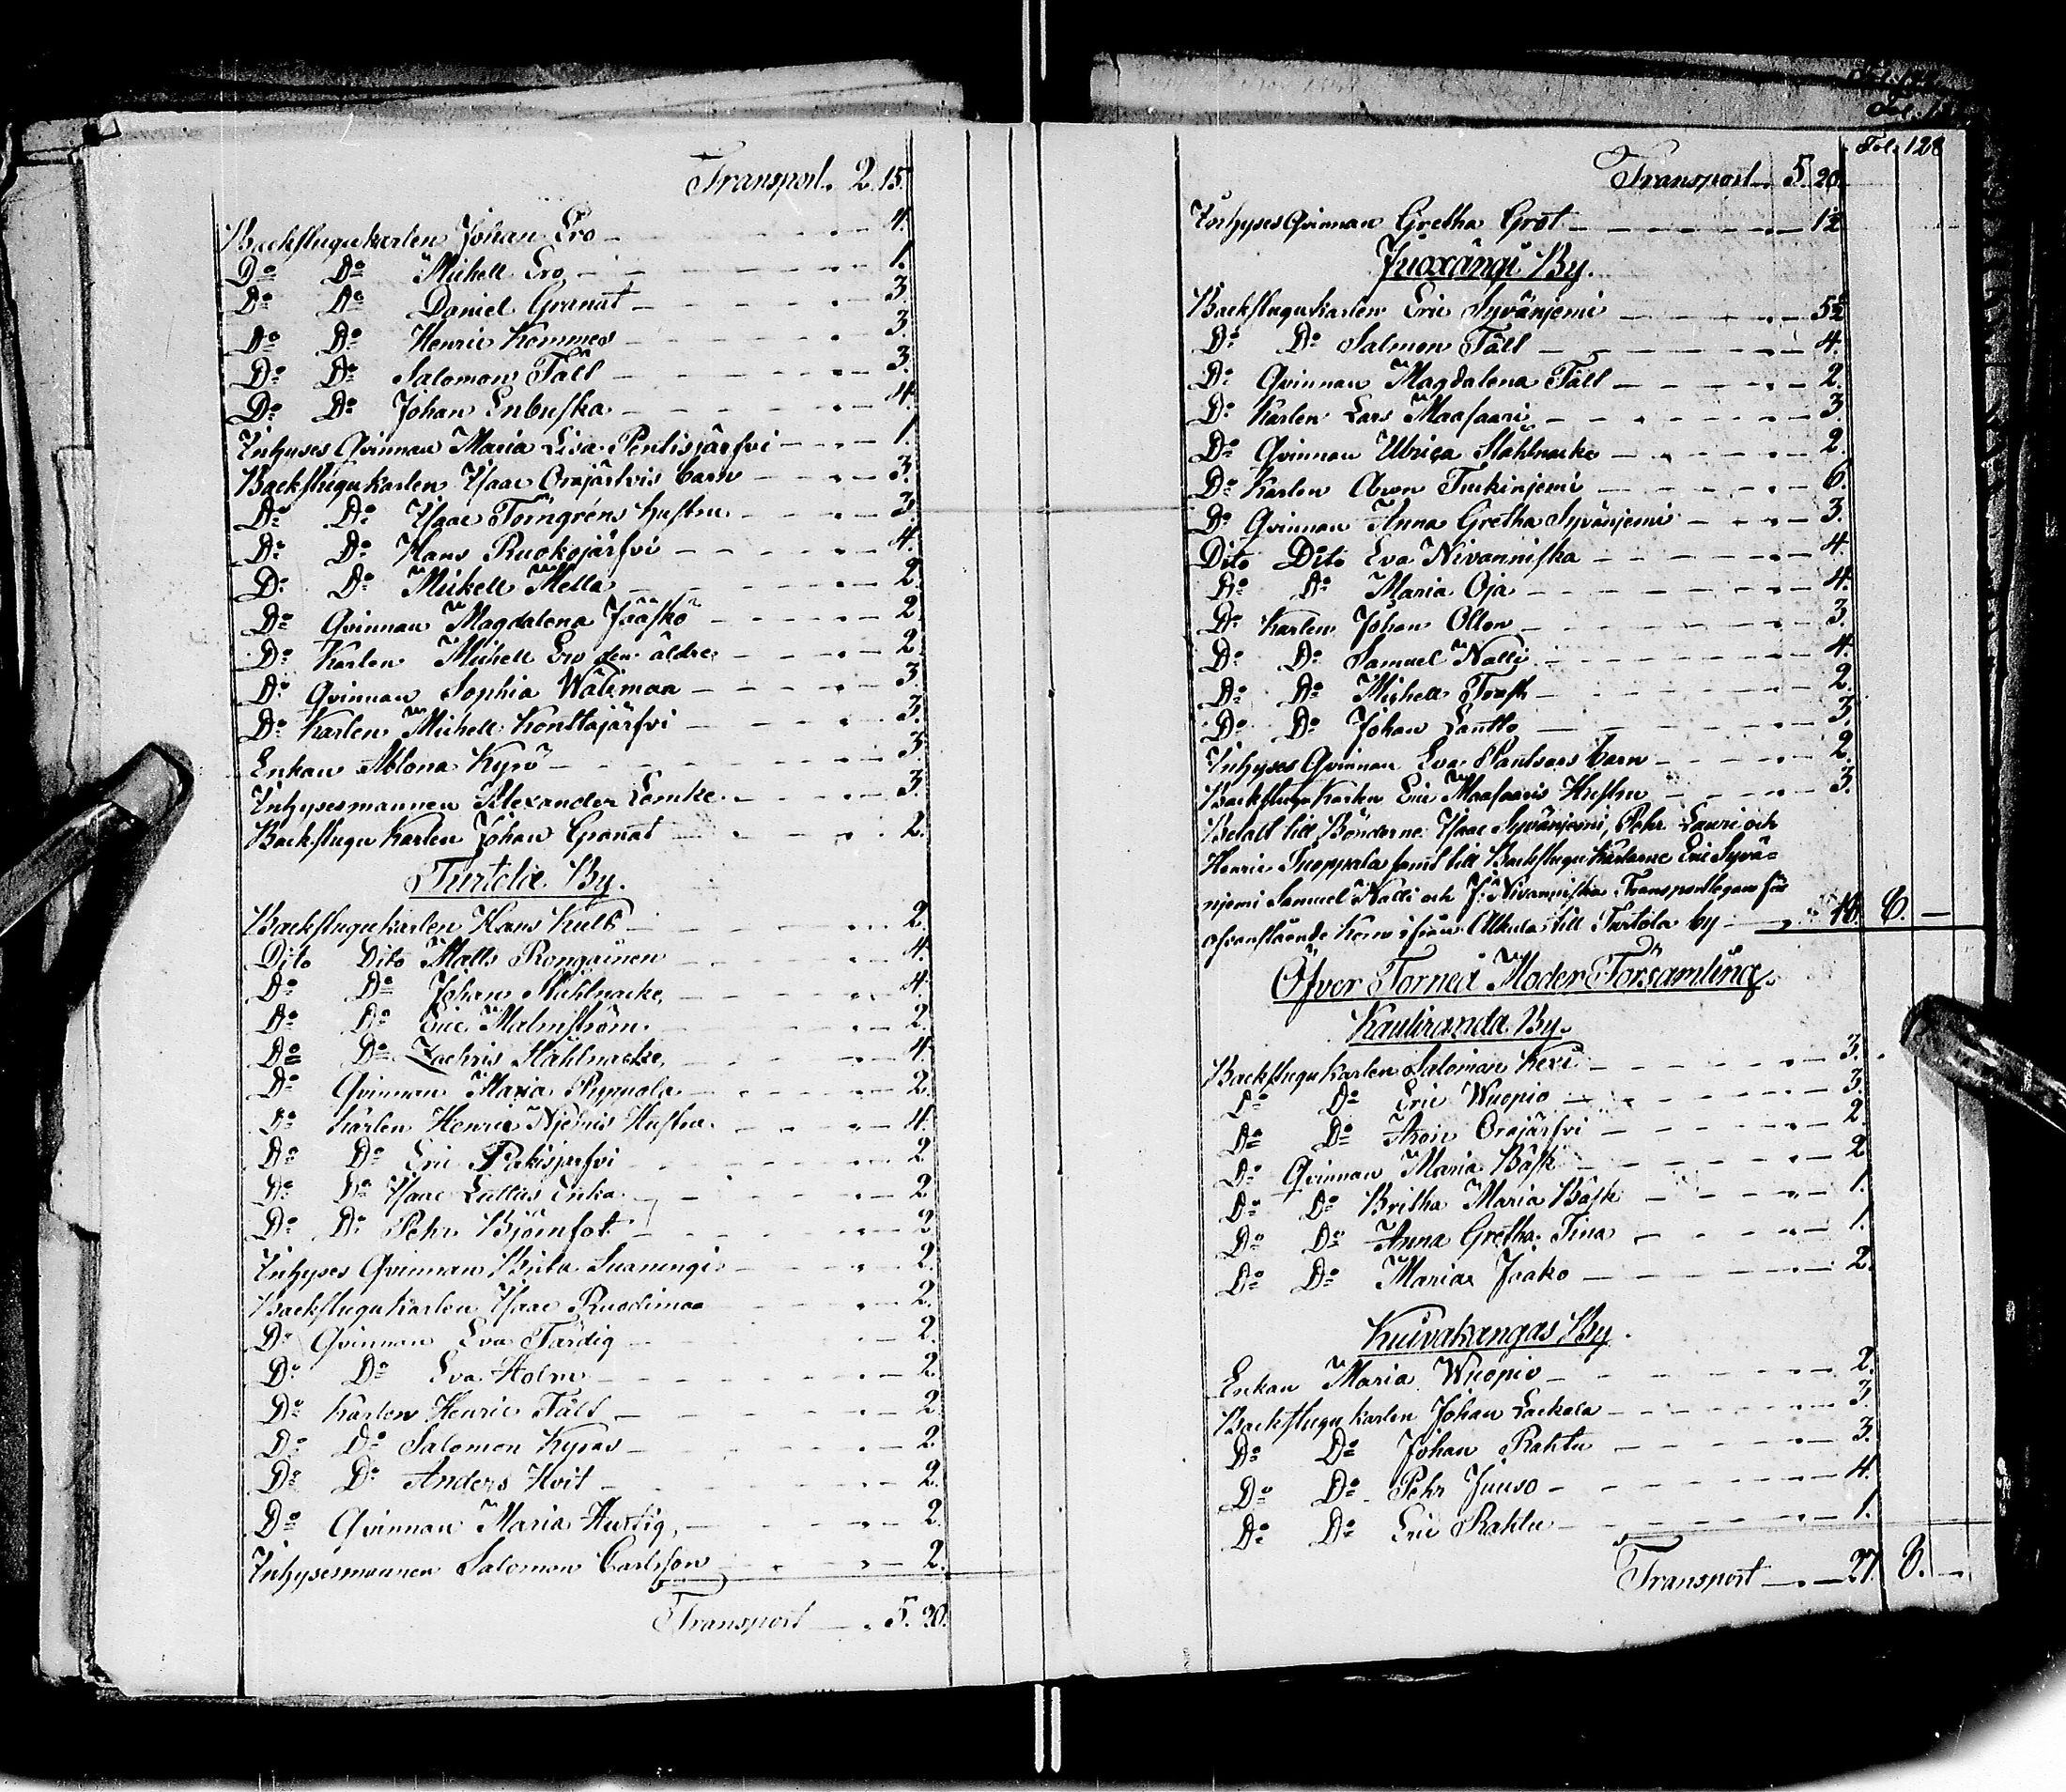 Transport. 2. 15.
Backstugukarlen Johan Ero - - - 4.
Do Do Michell Ero - - - 1.
Do Do Daniel Granat - - - 3
Do Do Henric Kommes - - - 3.
Do Do Salomon Fält - - - 3.
Do Do Johan Enbuska - - - 4.
Inhyses Qvinnan Maria Lisa Pentisjärfvi - - - 1.
Backstugukarlen Isaac Orajärfvis barn - - - 3.
Do Do Isaac Törngréns hustru - - - 3.
Do Do Hans Ruokojärfvi - - - 4.
Do Do Mickell Mella - - - 2.
Do Qvinnan Magdalena Jääskö - - - 2
Do Karlen Michell Ero den äldre - - - 2
Do Qvinnan Sophia Wälimaa - - - 3.
Do Karlen Michell Konttajärfvi - - - 3.
Enkan Ablona Kyrö - - - 3.
Inhysesmannen Alexander Lemke - - - 3.
Backstugu Karlen Johan Granat - - - 2.
Turtola By.
Backstugukarlen Hans Kult - - - 2.
Dito Dito Matts Rongainen - - - 4.
Do Do Johan Ståhlnacke - - - 4.
Do Do Eric Malmström - - - 2.
Do Do Zachris Ståhlnacke - - - 4.
Do Qvinnan Maria Pyppola - - - 2.
Do Karlen Henric Niemis Hustru - - - 4.
Do Do Eric Pakisjärfvi - - - 2
Do Do Isaac Lullus Enka - - - 2
Do Do Pehr Björnfot - - - 2
Inhyses Qvinnan Brita Suanengi - - - 2.
Backstugukarlen Isaac Ruodimaa - - - 2.
Do Qvinnan Eva Färdig - - - 2.
Do Do Eva Holm - - - 2.
Do Karlen Henric Fält - - - 2
Do Do Salomon Kyrös - - - 2.
Do Do Anders Hvit - - - 2.
Do Qvinnan Maria Hurtig - - - 2.
Inhysesmannen Salomon Carlsson - - - 2.
Transport - . 5. 20.
Fol. 128
Transport - . 5. 20.
Inhyses Qvinnan Gretha Grot - - - 1½
Juoxängi By.
Backstugukarlen Eric Syvänjemi - - - 5½
Do Do Salmon Fält - - - 4.
Do Qvinnan Magdalena Fält - - - 2.
Do Karlen Lars Maasaari - - - 3
Do Qvinnan Ulrica Ståhlnacke - - - 2.
Do Karlen Aron Turkinjemi - - - 6.
Do Qvinnan Anna Gretha Syvänjemi - - - 3.
Dito Dito Eva Nivanniska - - - 4.
Do Do Maria Oja - - - 4.
Do Karlen Johan Ollon - - - 3.
Do Do Samuel Nalli - - - 4.
Do Do Michell Trask - - - 2.
Do Do Johan Lantto - - - 3.
Inhyses Qvinnan Eva Plantsars barn - - - 2.
Backstugu Karlen Eric Maasaaris Hustru - - - 3.
Betalt till Bönderne Isaac Syvänjemi, Pehr Lauri och
Henric Suoppala samt till Backstugu Karlarne Eric Syvä-
njemi Samuel Nalli och J: Nivanniska Transportlegan för
ofvanstående Korn ifrån Alkula till Turtola by - . 18. 6. -
Öfver Torneå Moder Församling.
Kauliranda By.
Backstugu Karlen Salomon Kexi - - - 3.
Do Do Eric Wuopio - - - 3.
Do Do Aron Orajärfvi - - - 2.
Do Qvinnan Maria Bäsk - - - 2
Do Do Britha Maria Bäsk - - - 1.
Do Do Anna Gretha Tina - - - 1.
Do Do Maria Joako - - - 2.
Kuivakangas By.
Enkan Maria Wuopio - - - 2.
Backstugu Karlen Johan Lackala - - - 3.
Do Do Johan Rahtu - - - 3.
Do Do Pehr Juuso - - - 4.
Do Do Eric Rahtu - - - 1.
Transport - . 27. 8. -